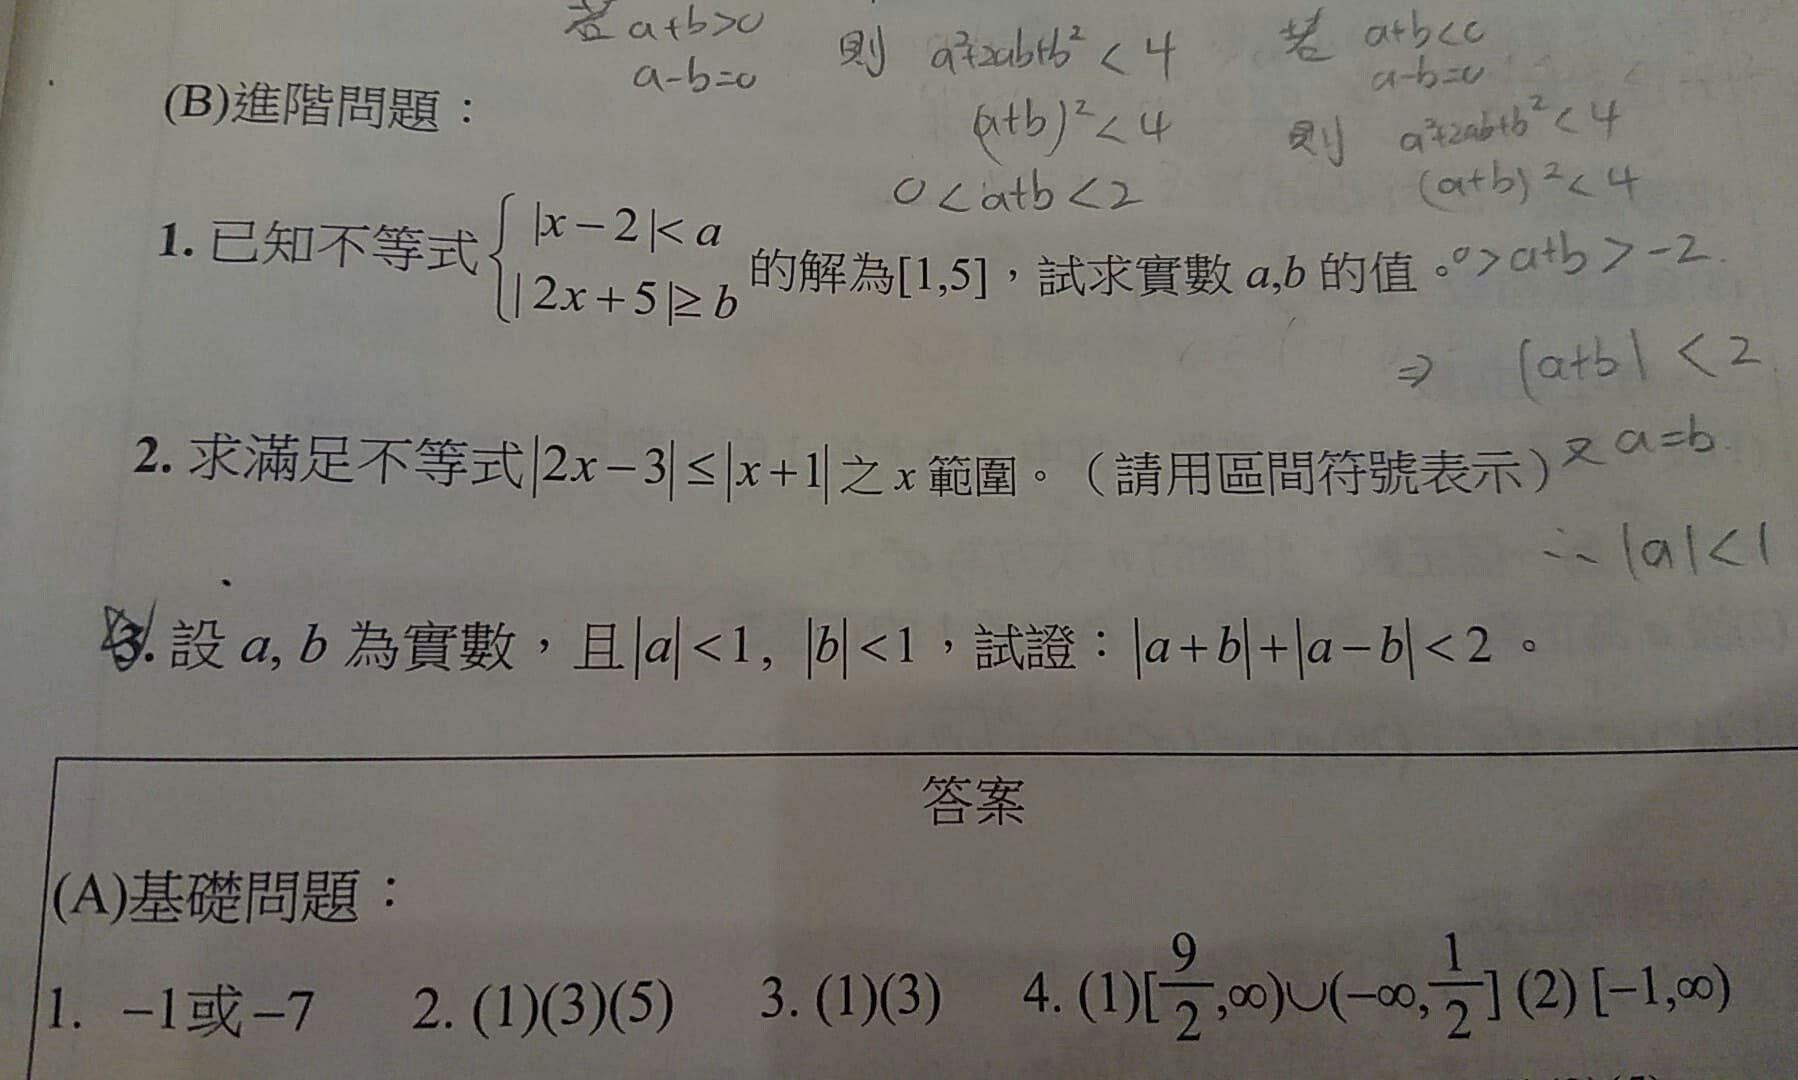 若 a+b>0
a-b=0
則 a²+2ab+b² < 4
(a+b)² < 4
0 < a+b < 2
若 a+b<0
a-b=0
則 a²+2ab+b² < 4
(a+b)² < 4
0 > a+b > -2.
⇒ |a+b| < 2
又 a=b.
∴ |a| < 1
(B)進階問題：
1. 已知不等式{ |x-2|< a
|2x+5|≥ b 的解為[1,5]，試求實數 a,b 的值。
2. 求滿足不等式|2x-3|≤|x+1|之 x 範圍。（請用區間符號表示）
3. 設 a, b 為實數，且|a|<1, |b|<1，試證：|a+b|+|a-b|<2。
答案
(A)基礎問題：
1. -1或-7 2. (1)(3)(5) 3. (1)(3) 4. (1)[9/2,∞)∪(-∞,1/2] (2) [-1,∞)